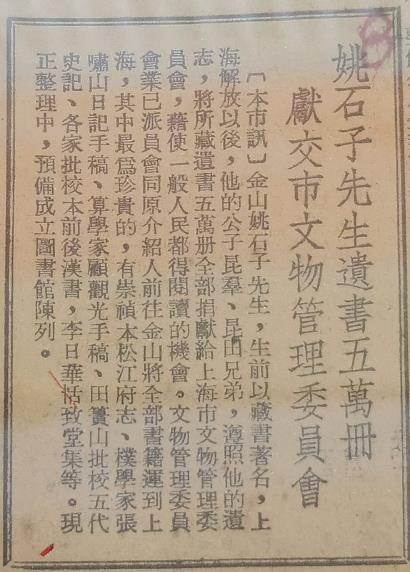 姚石子先生遺書五萬冊
獻交市文物管理委員會
〔本市訊〕金山姚石子先生，生前以藏書著名，上
海解放以後，他的公子昆羣、昆田兄弟，遵照他的遺
志，將所藏遺書五萬册全部捐獻給上海市文物管理委
員會，藉使一般人民都得閱讀的機會。文物管理委員
會業已派員會同原介紹人前往金山將全部書籍運到上
海，其中最爲珍貴的，有崇禎本松江府志、樸學家張
嘯山日記手稿、算學家顧觀光手稿、田簣山批校五代
史記、各家批校本前後漢書，李日華恬致堂集等。現
正整理中，預備成立圖書館陳列。